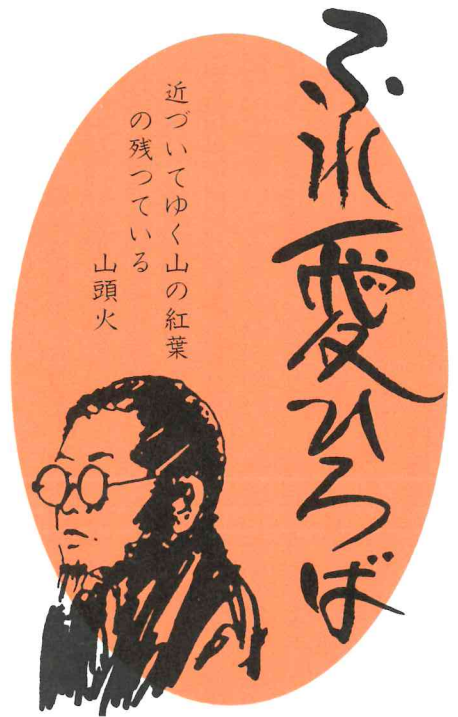 ふれ愛ひろば
近づいてゆく山の紅葉
の残つている
山頭火